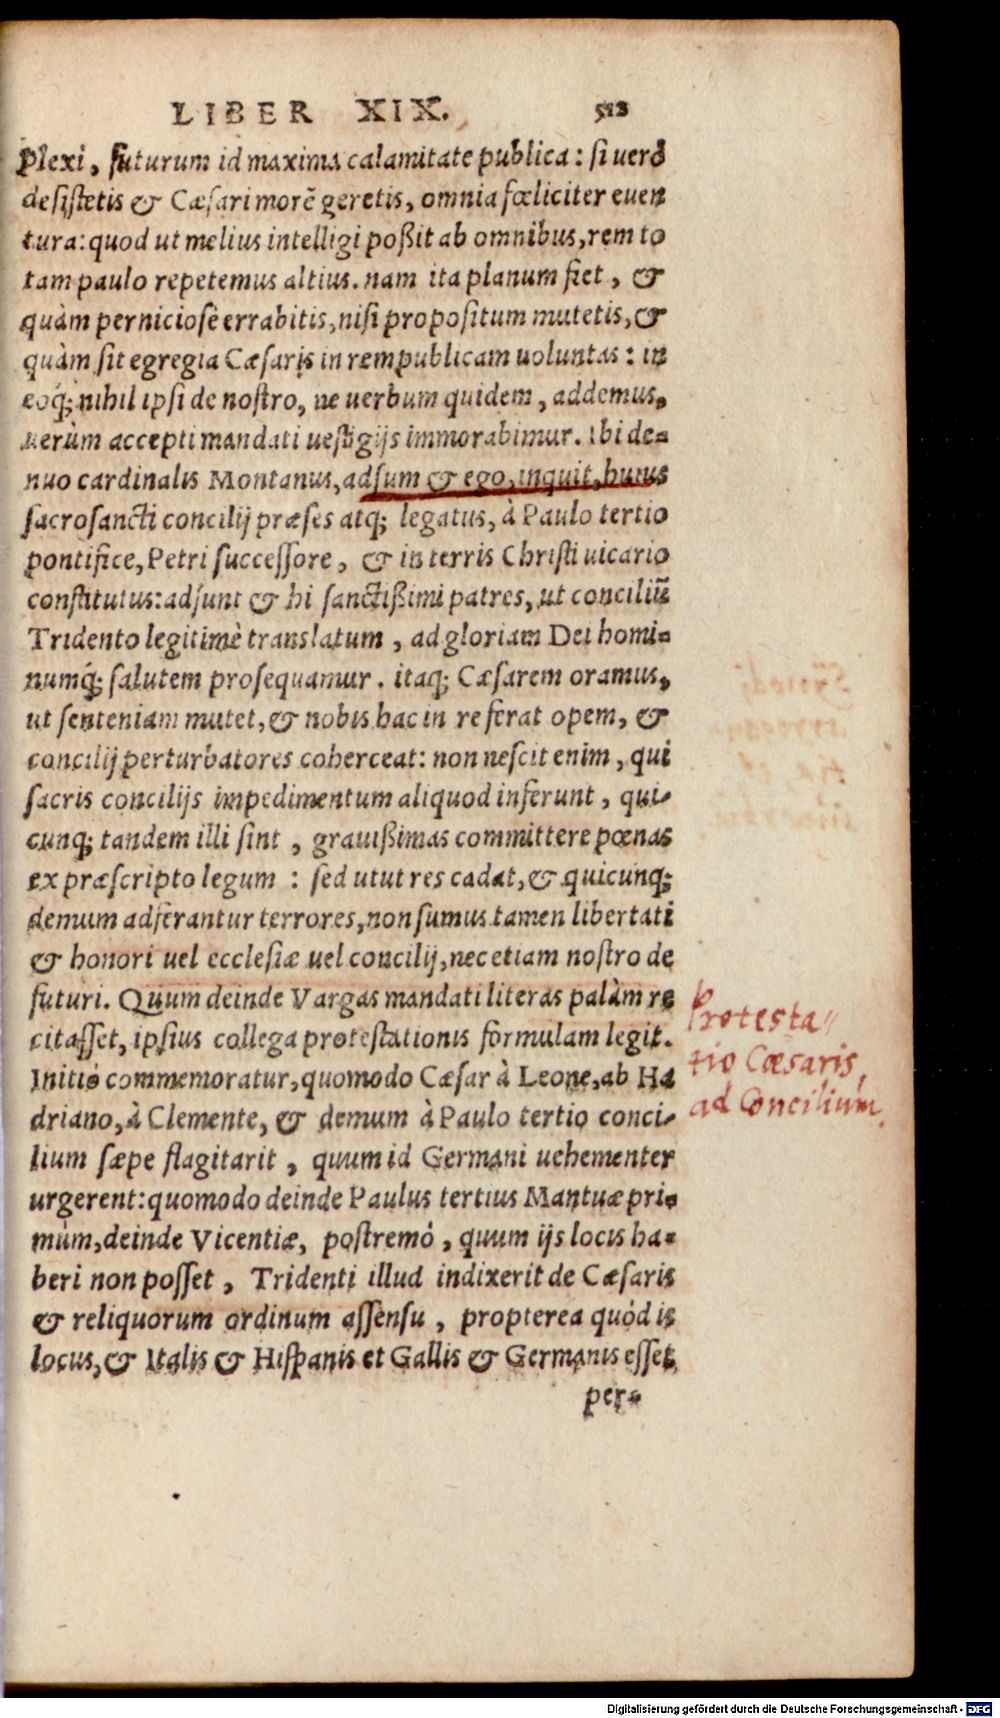 LIBER XIX. 513
plexi, futurum id maxima calamitate publica: si uerò
desistetis & Cæsari morẽ geretis, omnia fœliciter euen
tura: quod ut melius intelligi poßit ab omnibus, rem to
tam paulo repetemus altius. nam ita planum fiet, &
quàm perniciosè errabitis, nisi propositum mutetis, &
quàm sit egregia Cæsaris in rempublicam uoluntas: in
eoq́; nihil ipsi de nostro, ne uerbum quidem, addemus,
uerùm accepti mandati uestigijs immorabimur. Ibi de-
nuo cardinalis Montanus, adsum & ego, inquit, huius
sacrosancti concilij præses atq; legatus, à Paulo tertio
pontifice, Petri successore, & in terris Christi uicario
constitutus: adsunt & hi sanctißimi patres, ut conciliũ
Tridento legitimè translatum, ad gloriam Dei homi-
numq́; salutem prosequamur. itaq; Cæsarem oramus,
ut senteniam mutet, & nobis hac in re ferat opem, &
concilij perturbatores coherceat: non nescit enim, qui
sacris concilijs impedimentum aliquod inferunt, qui-
cunq; tandem illi sint, grauißimas committere pœnas
ex præscripto legum: sed utut res cadat, & quicunq;
demum adferantur terrores, non sumus tamen libertati
& honori uel ecclesiæ uel concilij, nec etiam nostro de
futuri. Quum deinde Vargas mandati literas palàm re
citasset, ipsius collega protestationis formulam legit.
Initiò commemoratur, quomodo Cæsar à Leone, ab Ha
driano, à Clemente, & demum à Paulo tertio conci-
lium sæpe flagitarit, quum id Germani uehementer
urgerent: quomodo deinde Paulus tertius Mantuæ pri-
mùm, deinde Vicentiæ, postremò, quum ijs locis ha-
beri non posset, Tridenti illud indixerit de Cæsaris
& reliquorum ordinum assensu, propterea quòd is
locus, & Italis & Hispanis et Gallis & Germanis esset
per-
Protesta-
tio Cæsaris
ad Concilium.
Digitalisierung gefördert durch die Deutsche Forschungsgemeinschaft - DFG